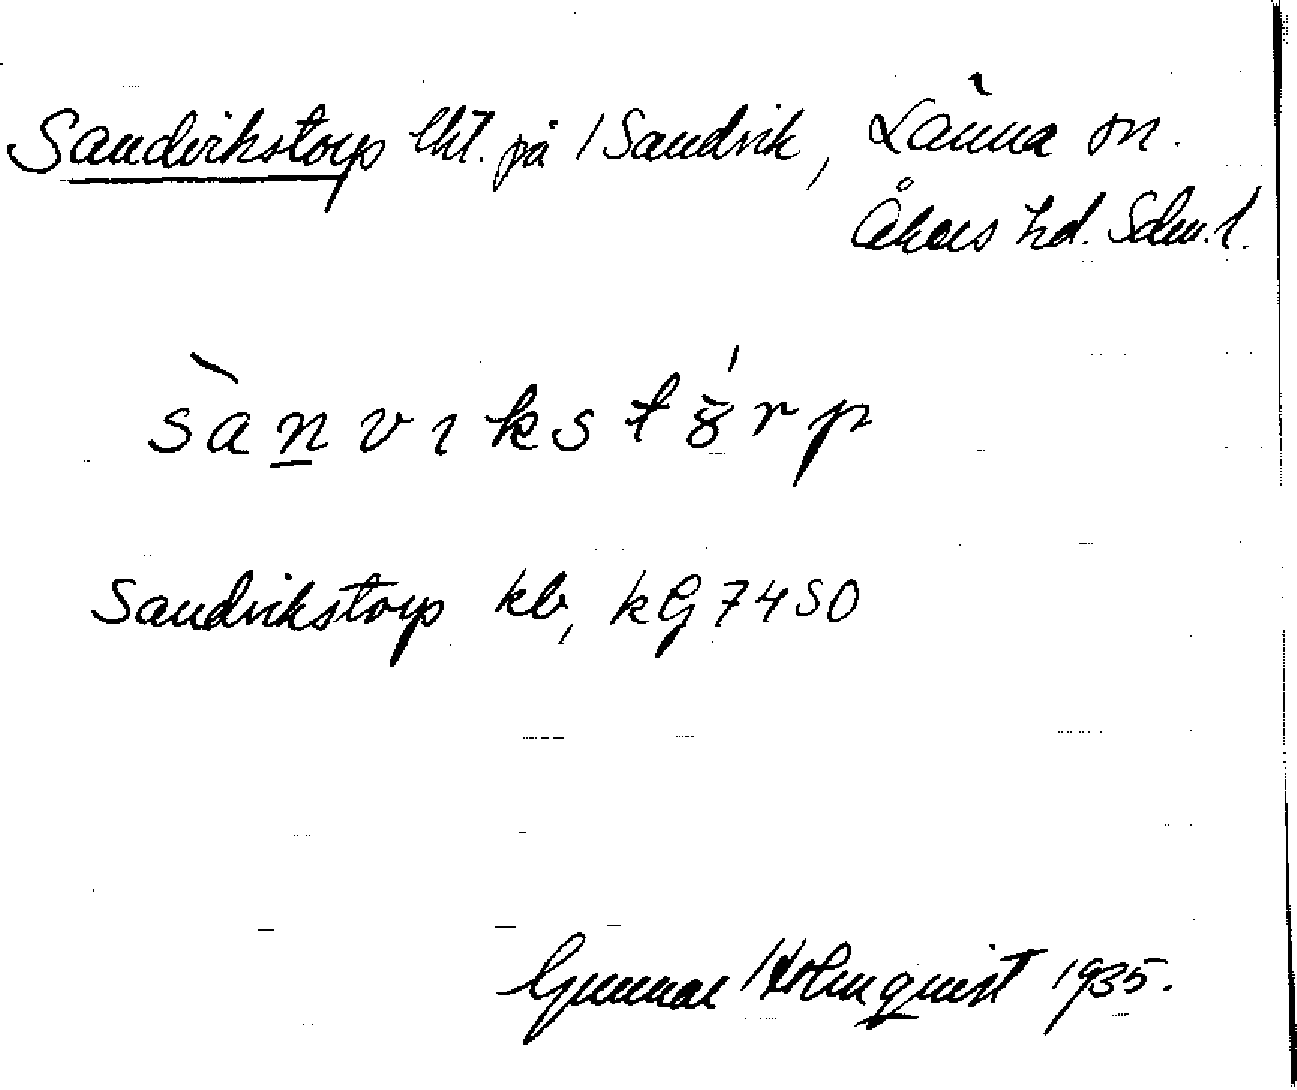 Sandvikstorp lht. på Sandvik, Länna sn.
Åkers hd. Sdm. l.
sànvıkstȣ́rp
Sandvikstorp kb, kG 7450
Gunnar Holmquist 1935.